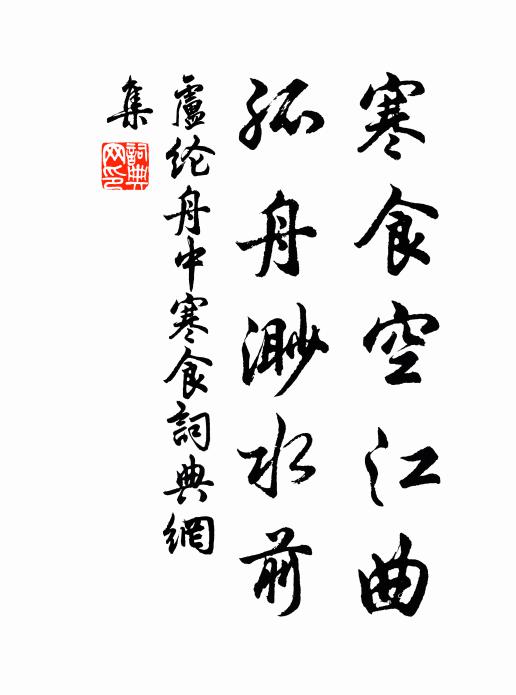 寒食空江曲
孤舟渺水前
盧纶舟中寒食詞典網
集
詞典
网印